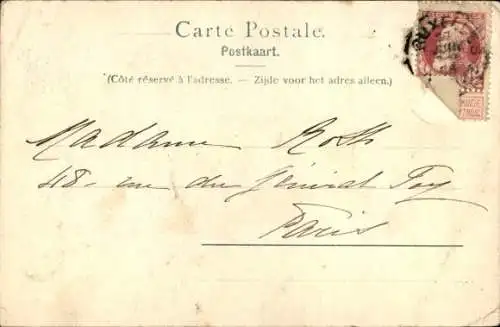 Carte Postale.
Postkaart.
(Côté réservé à l'adresse. — Zijde voor het adres alleen.)
Madame Roth
48- rue du Général Foy
Paris